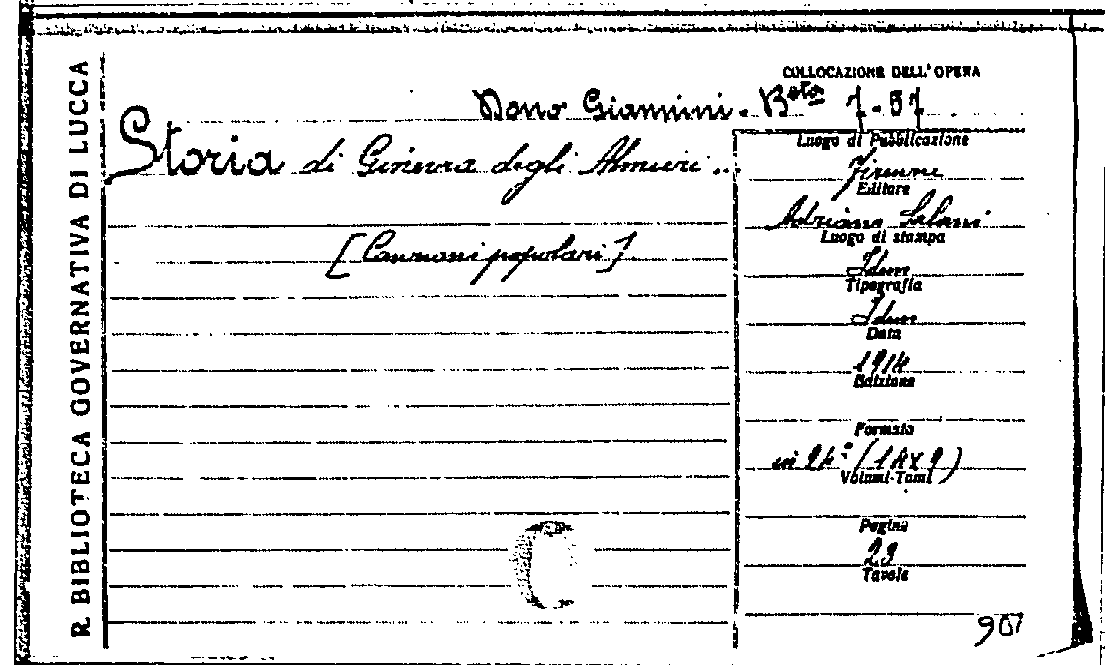 R. BIBLIOTECA GOVERNATIVA DI LUCCA
COLLOCAZIONE DELL'OPERA
Dono Giannini - Bta 7-57
Storia di Ginevra degli Almieri ...
[Canzoni popolari]
Luogo di Pubblicazione
Firenze
Editore
Adriano Salani
Luogo di stampa
Idem
Tipografia
Idem
Data
1914
Edizione
Formato
in 24° (14x9)
Volumi-Tomi
Pagine
23
Tavole
907
C